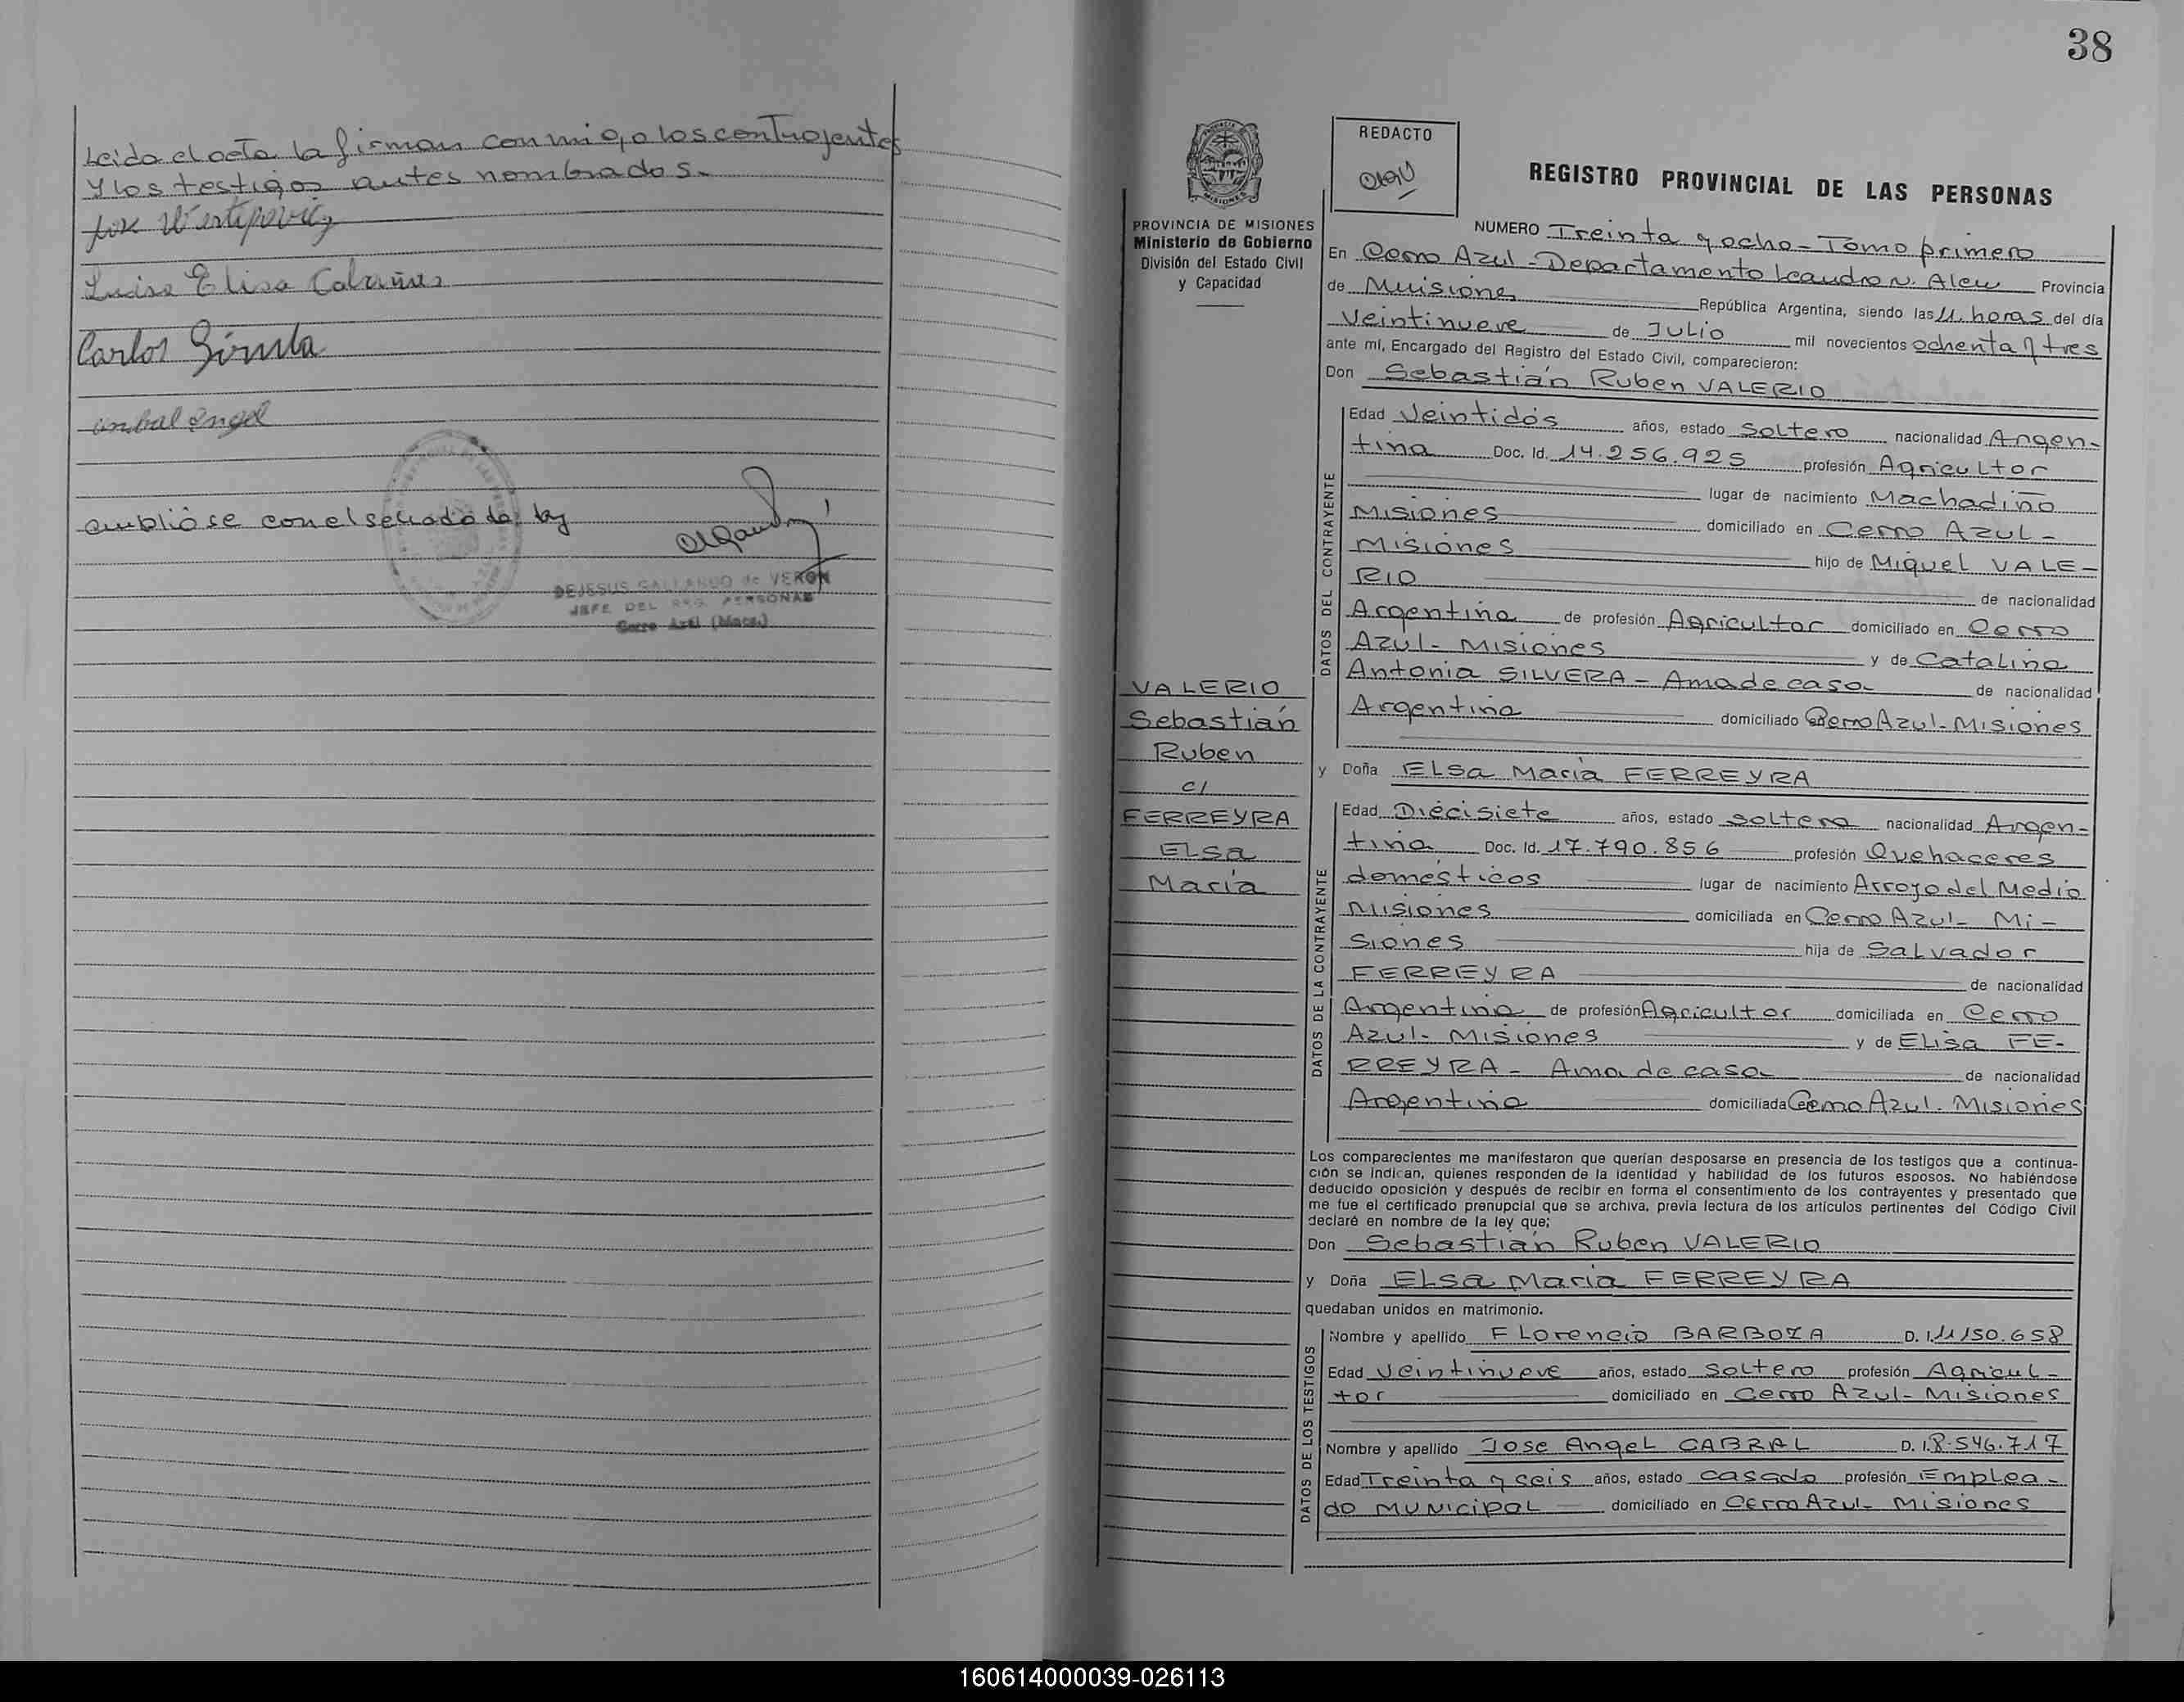 Leida el acta la firman conmigo los contrayentes
y los testigos antes nombrados.-
Luisa Elisa
Carlos
anbal Angel
cumpliose con el sellado de ley
DEJESUS GALLARDO de VERON
JEFE DEL REG. PERSONAS
Cerro Azul (Mnes.)
38
PROVINCIA DE MISIONES
Ministerio de Gobierno
División del Estado Civil
y Capacidad
REDACTO
REGISTRO PROVINCIAL DE LAS PERSONAS
NUMERO Treinta y ocho - Tomo primero
En Cerro Azul - Departamento Leandro N. Alem Provincia
de Misiones República Argentina, siendo las 11. horas del día
Veintinueve de Julio mil novecientos ochenta y tres
ante mí, Encargado del Registro del Estado Civil, comparecieron:
Don Sebastián Ruben VALERIO
DATOS DEL CONTRAYENTE
Edad Veintidós años, estado Soltero nacionalidad Argen-
tina Doc. Id. 14.256.925 profesión Agricultor
lugar de nacimiento Machadiño
Misiones domiciliado en Cerro Azul -
Misiones hijo de Miguel VALE-
RIO de nacionalidad
Argentina de profesión Agricultor domiciliado en Cerro
Azul - Misiones y de Catalina
Antonia SILVERA - Ama de casa - de nacionalidad
Argentina domiciliado Cerro Azul - Misiones
VALERIO
Sebastián
Ruben
c/
FERREYRA
Elsa
María
y Doña Elsa María FERREYRA
DATOS DE LA CONTRAYENTE
Edad Diécisiete años, estado soltera nacionalidad Argen-
tina Doc. Id. 17.790.856 profesión Quehaceres
domésticos lugar de nacimiento Arroyo del Medio
Misiones domiciliada en Cerro Azul - Mi-
siones hija de Salvador
FERREYRA de nacionalidad
Argentina de profesión Agricultor domiciliada en Cerro
Azul - Misiones y de Elisa FE-
RREYRA - Ama de casa - de nacionalidad
Argentina domiciliada Cerro Azul. Misiones
Los comparecientes me manifestaron que querían desposarse en presencia de los testigos que a continua-
ción se indican, quienes responden de la identidad y habilidad de los futuros esposos. No habiéndose
deducido oposición y después de recibir en forma el consentimiento de los contrayentes y presentado que
me fue el certificado prenupcial que se archiva, previa lectura de los artículos pertinentes del Código Civil
declaré en nombre de la ley que;
Don Sebastián Ruben VALERIO
y Doña Elsa María FERREYRA
quedaban unidos en matrimonio.
DATOS DE LOS TESTIGOS
Nombre y apellido Florencio BARBOZA D. I. 11.150.658
Edad Veintinueve años, estado Soltero profesión Agricul-
tor domiciliado en Cerro Azul - Misiones
Nombre y apellido Jose Angel CABRAL D. I. 8.546.717
Edad Treinta y seis años, estado casado profesión Emplea-
do Municipal domiciliado en Cerro Azul - Misiones
160614000039-026113